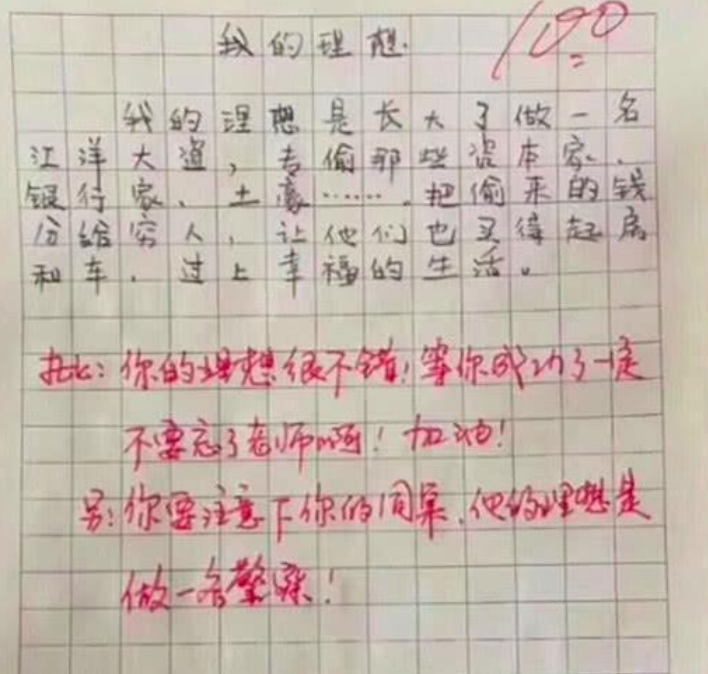 我的理想
100
我的理想是长大了做一名
江洋大道，专偷那些资本家、
银行家、土豪……，把偷来的钱
分给穷人，让他们也买得起房
和车，过上幸福的生活。
批：你的理想很不错！等你成功了一定
不要忘了老师啊！加油！
另：你要注意下你的同桌，他的理想是
做一名警察！